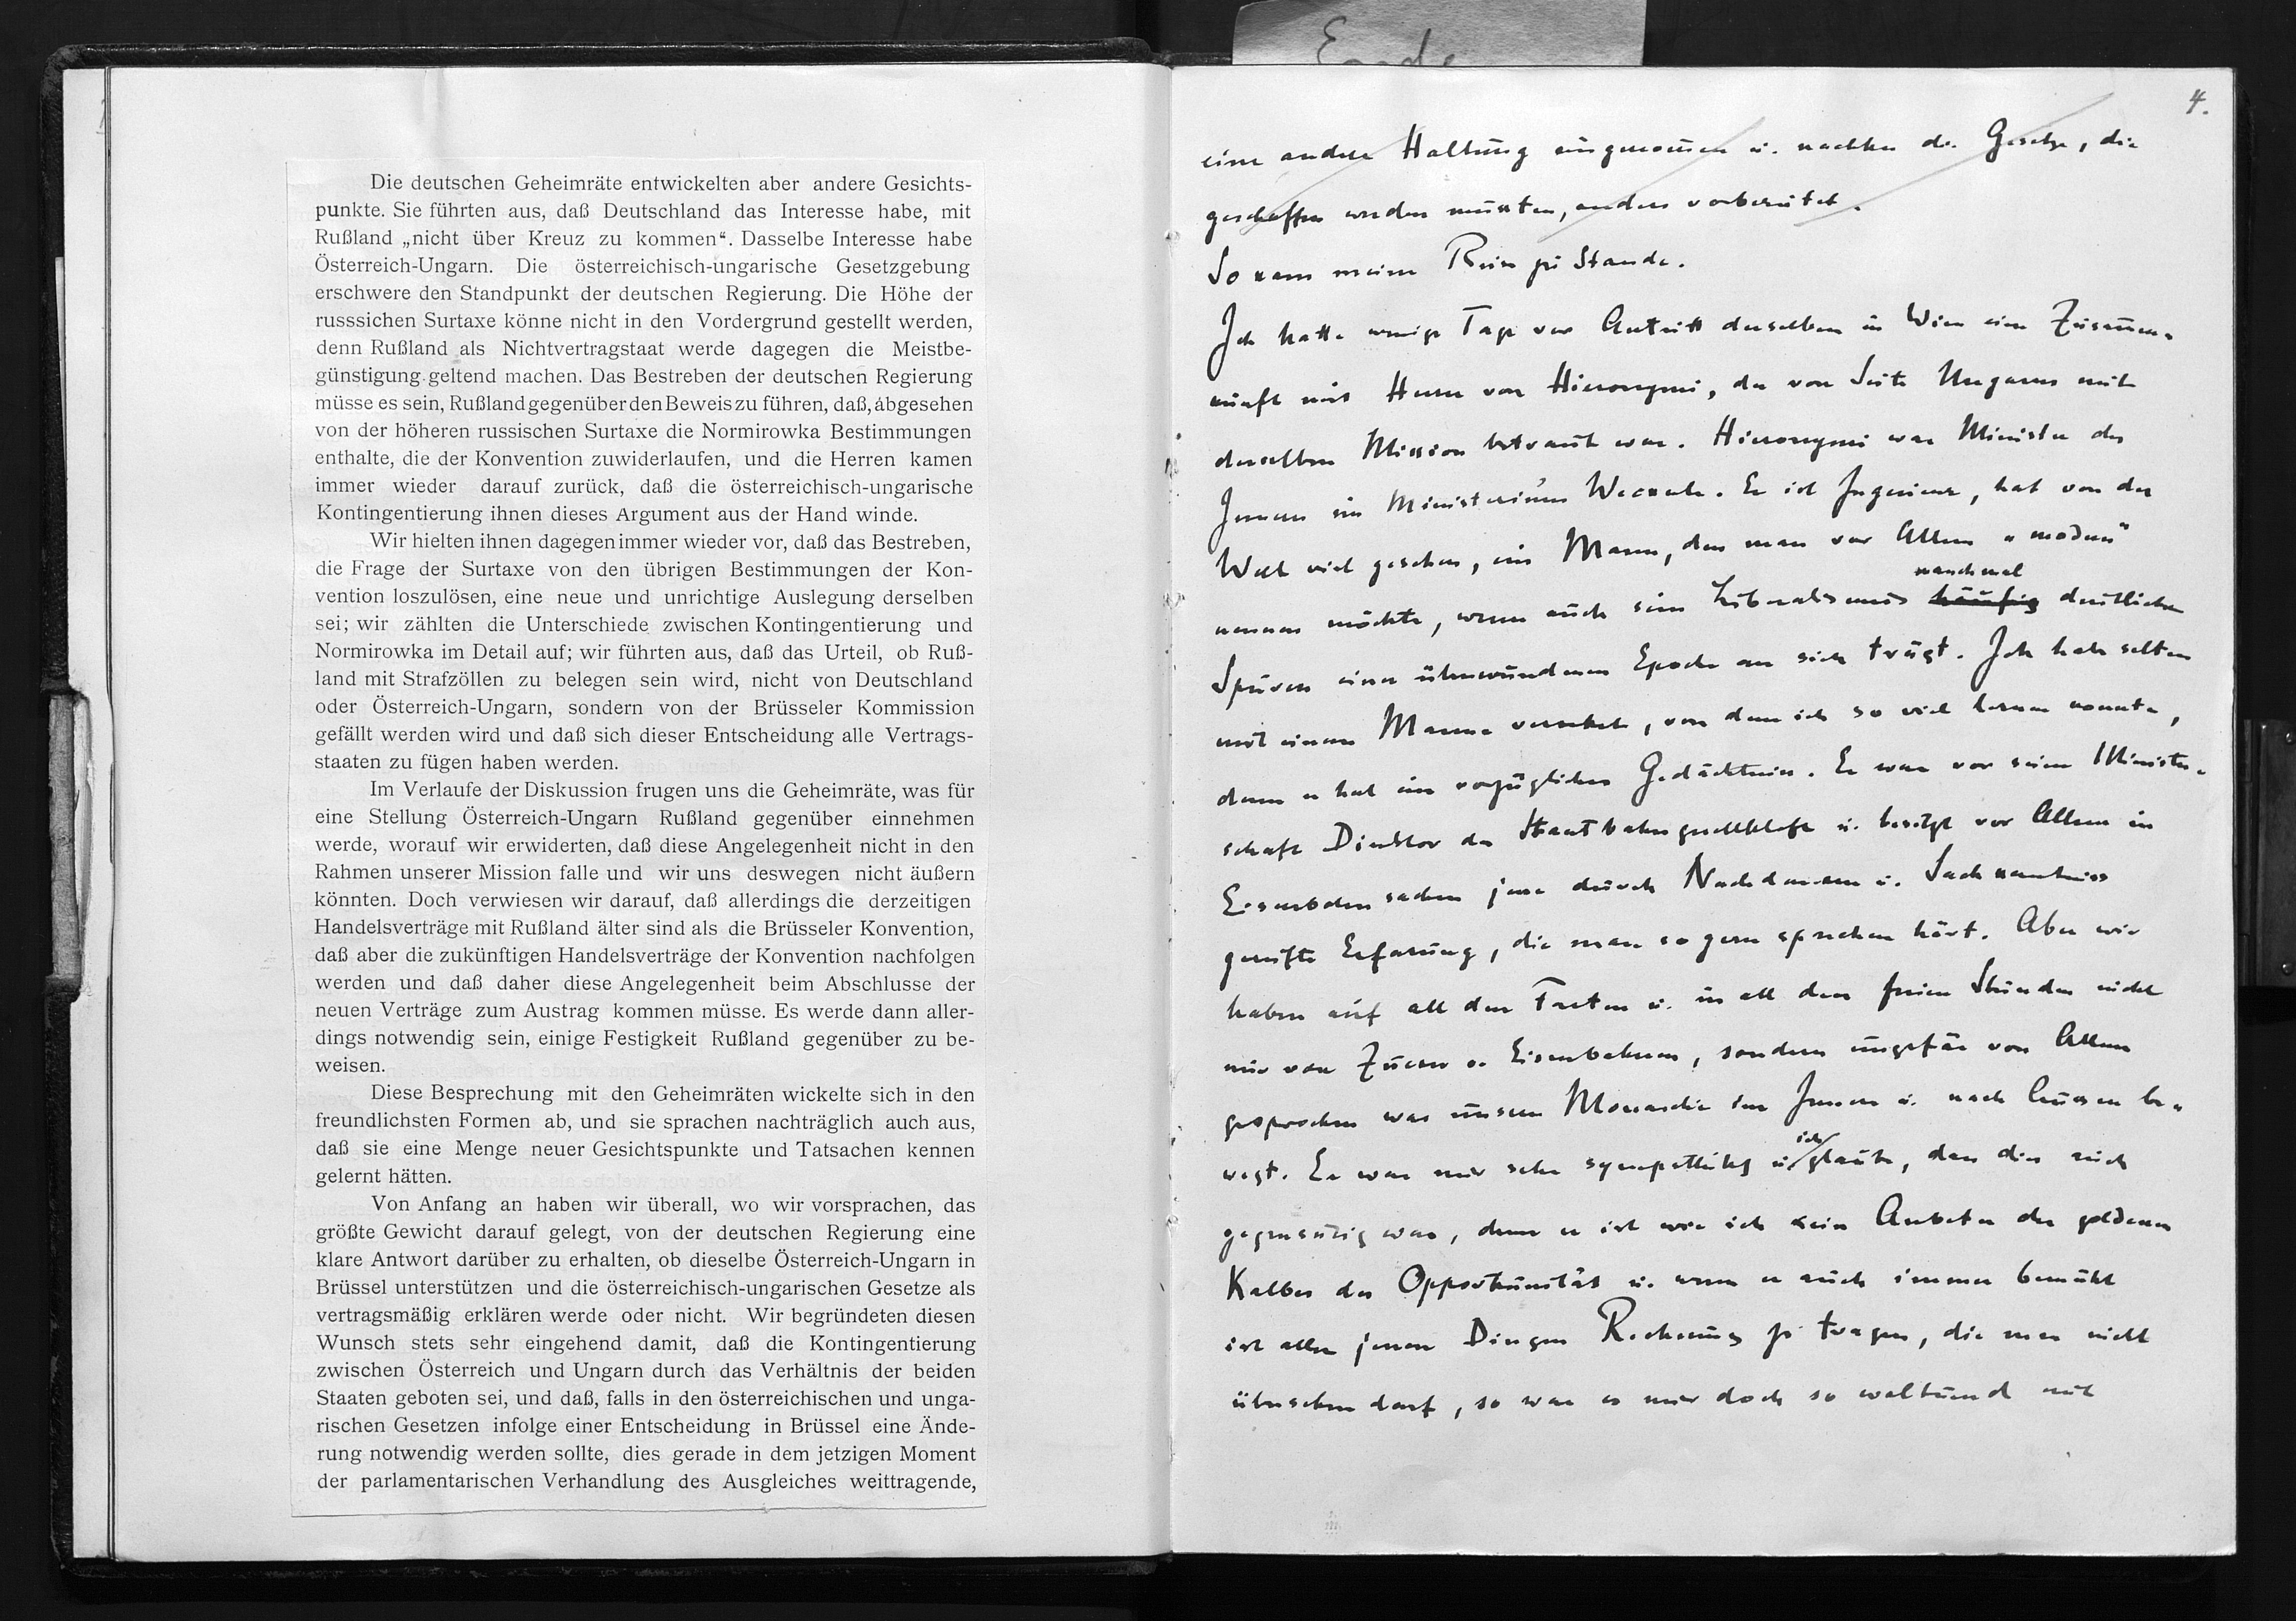 Ende
Die deutschen Geheimräte entwickelten aber andere Gesichts-
punkte. Sie führten aus, daß Deutschland das Interesse habe, mit
Rußland „nicht über Kreuz zu kommen“. Dasselbe Interesse habe
Österreich-Ungarn. Die österreichisch-ungarische Gesetzgebung
erschwere den Standpunkt der deutschen Regierung. Die Höhe der
russsichen Surtaxe könne nicht in den Vordergrund gestellt werden,
denn Rußland als Nichtvertragstaat werde dagegen die Meistbe-
günstigung geltend machen. Das Bestreben der deutschen Regierung
müsse es sein, Rußland gegenüber den Beweis zu führen, daß, abgesehen
von der höheren russischen Surtaxe die Normirowka Bestimmungen
enthalte, die der Konvention zuwiderlaufen, und die Herren kamen
immer wieder darauf zurück, daß die österreichisch-ungarische
Kontingentierung ihnen dieses Argument aus der Hand winde.
Wir hielten ihnen dagegen immer wieder vor, daß das Bestreben,
die Frage der Surtaxe von den übrigen Bestimmungen der Kon-
vention loszulösen, eine neue und unrichtige Auslegung derselben
sei; wir zählten die Unterschiede zwischen Kontingentierung und
Normirowka im Detail auf; wir führten aus, daß das Urteil, ob Ruß-
land mit Strafzöllen zu belegen sein wird, nicht von Deutschland
oder Österreich-Ungarn, sondern von der Brüsseler Kommission
gefällt werden wird und daß sich dieser Entscheidung alle Vertrags-
staaten zu fügen haben werden.
Im Verlaufe der Diskussion frugen uns die Geheimräte, was für
eine Stellung Österreich-Ungarn Rußland gegenüber einnehmen
werde, worauf wir erwiderten, daß diese Angelegenheit nicht in den
Rahmen unserer Mission falle und wir uns deswegen nicht äußern
könnten. Doch verwiesen wir darauf, daß allerdings die derzeitigen
Handelsverträge mit Rußland älter sind als die Brüsseler Konvention,
daß aber die zukünftigen Handelsverträge der Konvention nachfolgen
werden und daß daher diese Angelegenheit beim Abschlusse der
neuen Verträge zum Austrag kommen müsse. Es werde dann aller-
dings notwendig sein, einige Festigkeit Rußland gegenüber zu be-
weisen.
Diese Besprechung mit den Geheimräten wickelte sich in den
freundlichsten Formen ab, und sie sprachen nachträglich auch aus,
daß sie eine Menge neuer Gesichtspunkte und Tatsachen kennen
gelernt hätten.
Von Anfang an haben wir überall, wo wir vorsprachen, das
größte Gewicht darauf gelegt, von der deutschen Regierung eine
klare Antwort darüber zu erhalten, ob dieselbe Österreich-Ungarn in
Brüssel unterstützen und die österreichisch-ungarischen Gesetze als
vertragsmäßig erklären werde oder nicht. Wir begründeten diesen
Wunsch stets sehr eingehend damit, daß die Kontingentierung
zwischen Österreich und Ungarn durch das Verhältnis der beiden
Staaten geboten sei, und daß, falls in den österreichischen und unga-
rischen Gesetzen infolge einer Entscheidung in Brüssel eine Ände-
rung notwendig werden sollte, dies gerade in dem jetzigen Moment
der parlamentarischen Verhandlung des Ausgleiches weittragende,
4.
eine andere Haltung eingenommen u. die Gesetze, die
geschaffen werden mussten, anders vorbereitet.
So kam meine Reise zu Stande.
Ich hatte wenige Tage vor Antritt derselben in Wien eine Zusammen-
kunft mit Herrn von Hieronymi, der von Seite Ungarns mit
derselben Mission betraut war. Hieronymi war Minister des
Innern im Ministerium Weckerle. Er ist Ingenieur, hat von der
Welt viel gesehen, ein Mann, den man vor Allem „modern“
manchmal
nennen möchte, wenn auch sein Liberalismus häufig deutliche
Spuren einer überwundenen Epoche an sich trägt. Ich habe selten
mit einem Manne verkehrt, von dem ich so viel lernen konnte,
denn er hat ein vorzügliches Gedächtniss. Er war vor seiner Minister-
schaft Direktor der Staatsbahngesellschaft u. besitzt vor Allem in
Eisenbahnsachen jene durch Nachdenken u. Sachkentniss
gereifte Erfarung, die man so gern sprechen hört. Aber wir
haben auf all den Farten u. in all den freien Stunden nicht
nur von Zucker u. Eisenbahnen, sondern ungefär von Allem
gesprochen was unsere Monarchie im Innern u. nach Aussen be-
ich
wegt. Er war mir sehr sympathisch u. glaube, dass dies auch
gegenseitig war, denn er ist wie ich kein Anbeter des goldenen
Kalbes der Opportunität u. wenn er auch immer bemüht
ist allen jenen Dingen Rechnung zu tragen, die man nicht
übersehen darf, so war es mir doch so woltuend mit